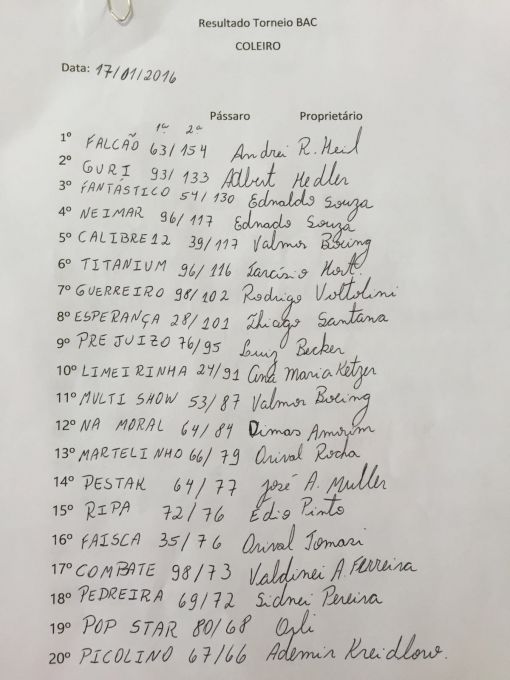 Resultado Torneio BAC
COLEIRO
Data: 17/01/2016
Pássaro Proprietário
1ª 2ª
1º FALCÃO 63/154 Andrei R. Heil
2º GURI 93/133 Adbert Hedler
3º FANTÁSTICO 54/130 Ednaldo Souza
4º NEIMAR 96/117 Ednado Souza
5º CALIBRE12 39/117 Valmor Boeing
6º TITANIUM 96/116 Tarcísio
7º GUERREIRO 98/102 Rodrigo Voltolini
8º ESPERANÇA 28/101 Thiago Santana
9º PREJUIZO 76/95 Luiz Becker
10º LIMEIRINHA 24/91 Ana Maria Ketzer
11º MULTI SHOW 53/87 Valmor Boeing
12º NA MORAL 64/84 Dimas Amorim
13º MARTELINHO 66/79 Orival Rocha
14º PESTAK 64/77 José A. Muller
15º RIPA 72/76 Édio Pinto
16º FAISCA 35/76 Orival Tomasi
17º COMBATE 98/73 Valdinei A. Ferreira
18º PEDREIRA 69/72 Sidnei Pereira
19º POP STAR 80/68 Orli
20º PICOLINO 67/66 Ademir Kreidlow.